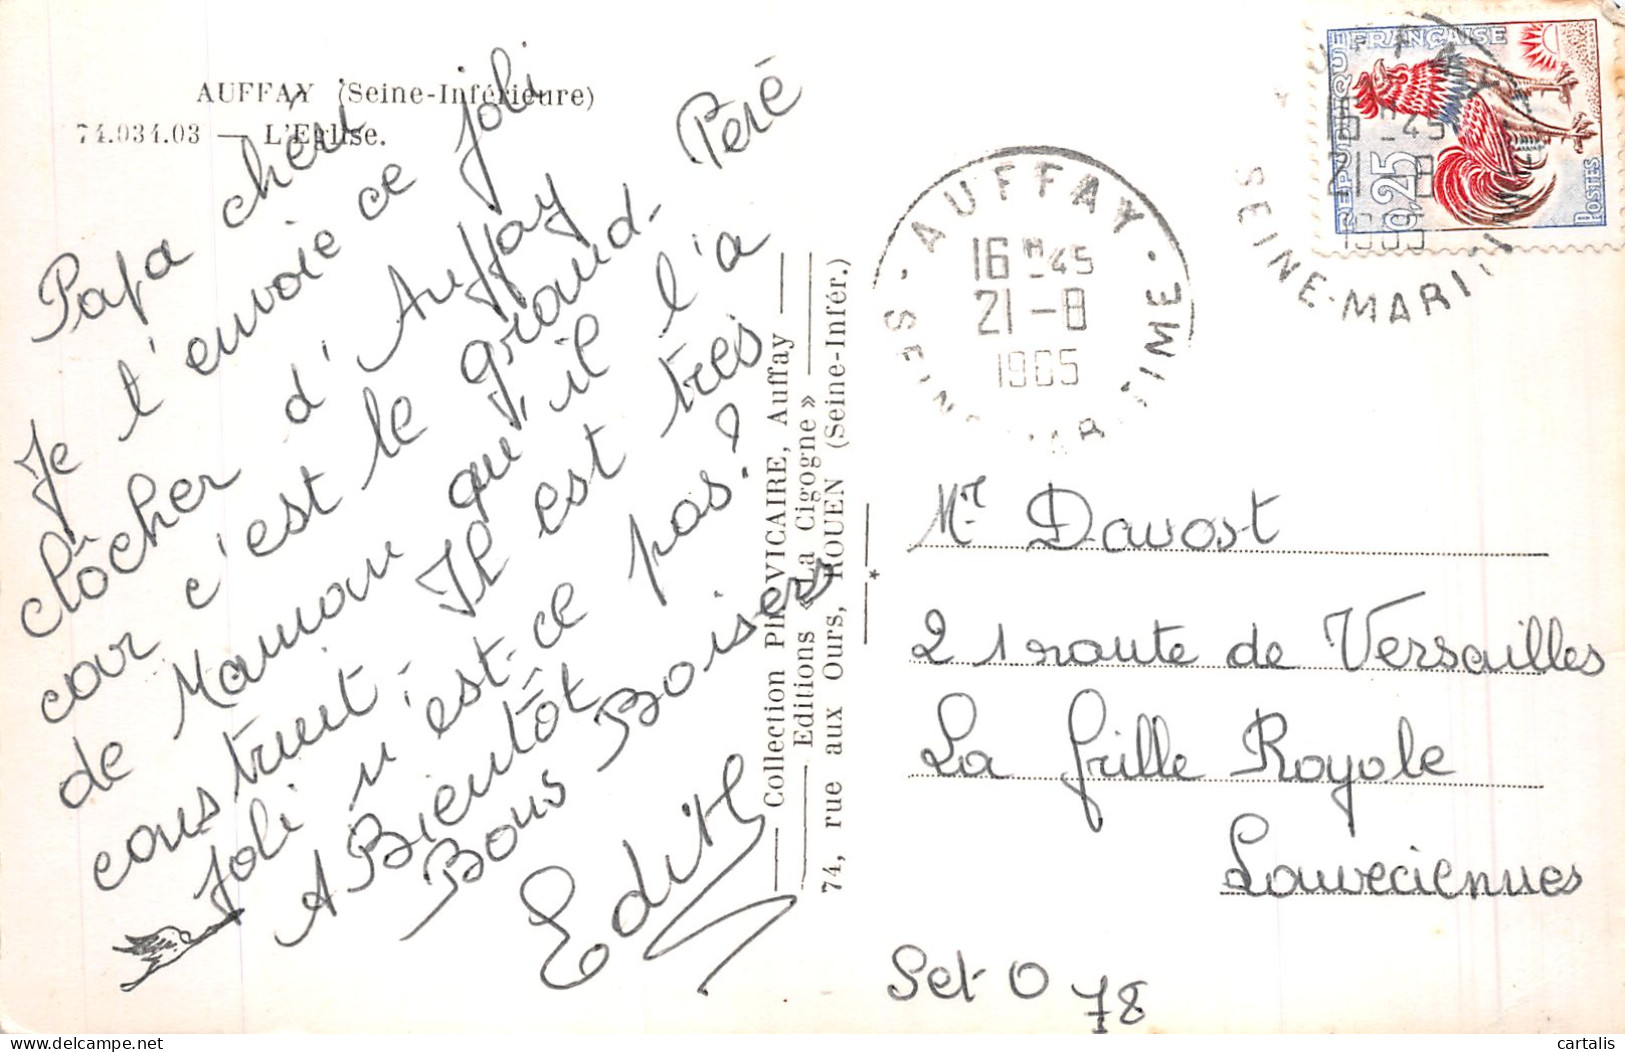 AUFFAY (Seine-Inférieure)
74.034.03 — L'Eglise.
Papa chéri
Je t'envoie ce joli
clôcher d'Auffay
car c'est le grand-Peré
de Maman qu'il l'a
construit. Il est très
Joli n'est-ce pas?
A Bientôt
Bons Baisers
Edith
Collection PH. VICAIRE, Auffay
Editions « La Cigogne »
74, rue aux Ours, ROUEN (Seine-Infér.)
AUFFAY
16 H 45
21-8
1965
SEINE-MARITIME
REPUBLIQUE FRANÇAISE
0,25
POSTES
16 H 45
21-8
1965
SEINE-MARITIME
Mr Davost
21 route de Versailles
La Grille Royale
Louveciennes
Set O
78
cartalis